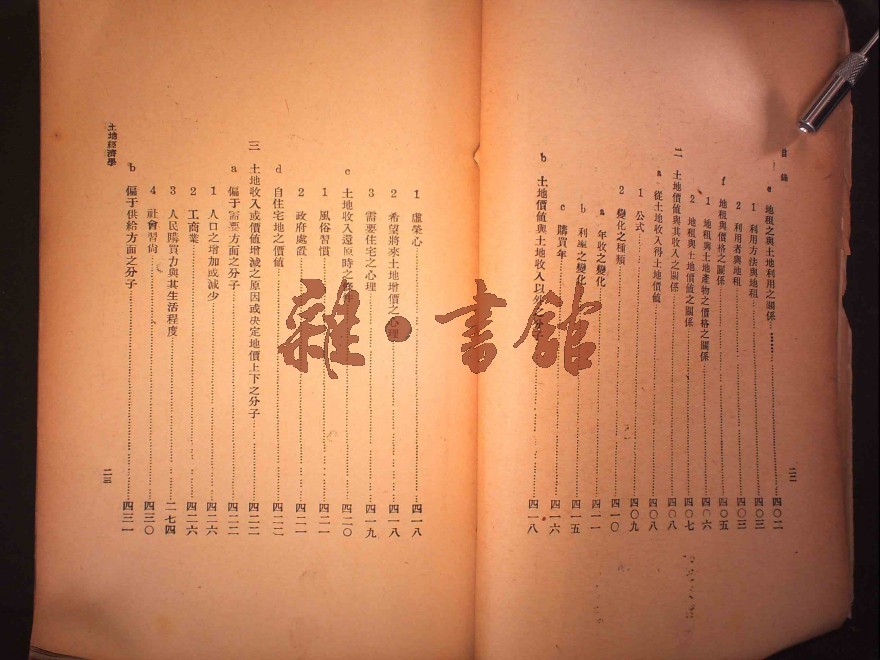 目錄
e 地租之與土地利用之關係……四〇二
1 利用方法與地租……四〇三
2 利用者與地租……四〇三
f 地租與價格之關係……四〇五
1 地租與土地產物之價格之關係……四〇六
2 地租與土地價值之關係……四〇七
二 土地價值與其收入之關係……四〇八
a 從土地收入得土地價值……四〇八
1 公式……四〇九
2 變化之種類……四一〇
a 年收之變化……四一一
b 利率之變化……四一五
c 購買年……四一六
b 土地價值與土地收入以外之分子……四一八
二二
1 虛榮心……四一八
2 希望將來土地增價之心理……四一八
3 需要住宅之心理……四一九
c 土地收入還原時之……四二〇
1 風俗習慣……四二一
2 政府處置……四二一
d 自住宅地之價值……四二二
三 土地收入或價值增減之原因或決定地價上下之分子……四二二
a 偏于需要方面之分子……四二二
1 人口之增加或減少……四二六
2 工商業……四二六
3 人民購買力與其生活程度……二七四
4 社會習尚……四三〇
b 偏于供給方面之分子……四三一
土地經濟學
二三
雜·書館